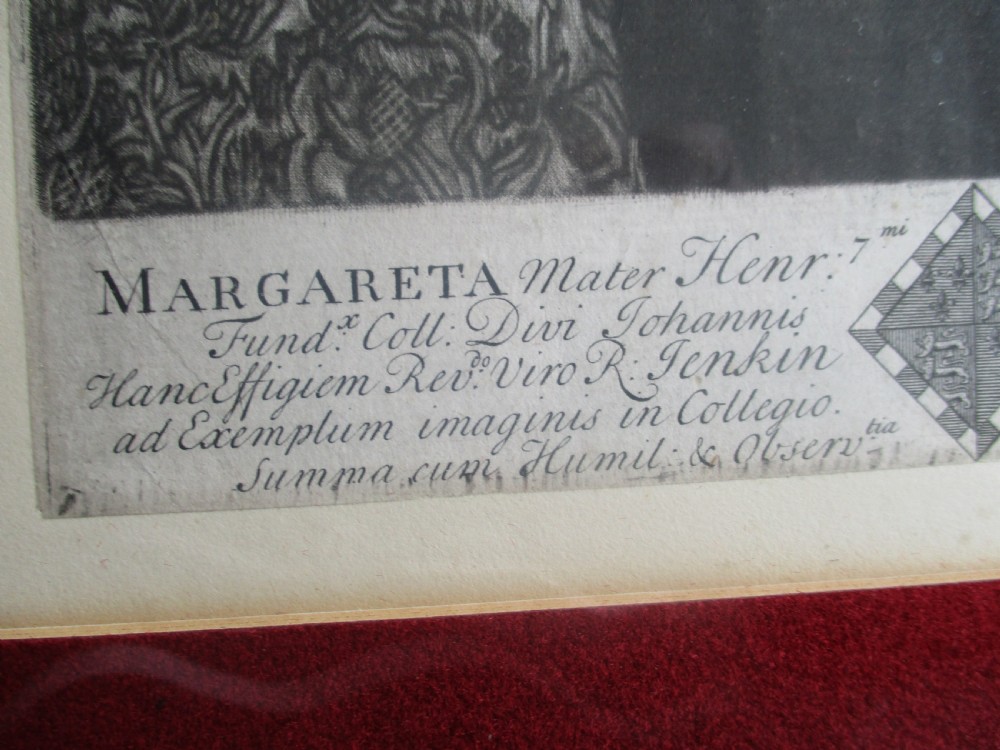 MARGARETA Mater Henr: 7mi
Fund.x Coll: Divi Iohannis
Hanc Effigiem Rev.do Viro R: Jenkin
ad Exemplum imaginis in Collegio.
Summa cum Humil: & Observ.tia